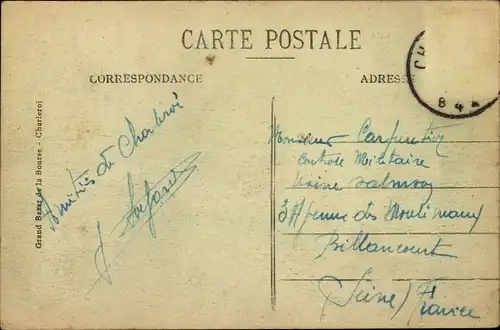 CARTE POSTALE
CORRESPONDANCE
ADRESS
CH
8 4
Grand Bazar de la Bourse - Charleroi
Amitiés de Charleroi
Monsieur Carpentier
Controle Militaire
Usine Salmson
3 Avenue des Moulineaux
Billancourt
(Seine) France